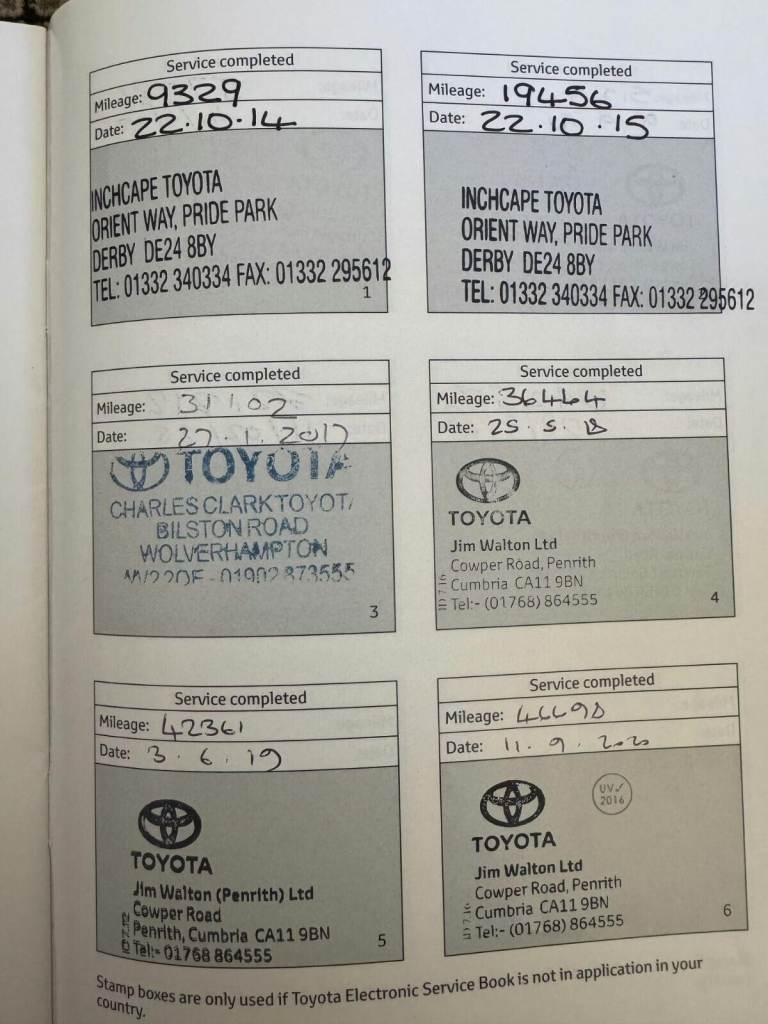 Service completed
Mileage: 9329
Date: 22.10.14
INCHCAPE TOYOTA
ORIENT WAY, PRIDE PARK
DERBY DE24 8BY
TEL: 01332 340334 FAX: 01332 295612
1
Service completed
Mileage: 19456
Date: 22.10.15
INCHCAPE TOYOTA
ORIENT WAY, PRIDE PARK
DERBY DE24 8BY
TEL: 01332 340334 FAX: 01332 295612
2
Service completed
Mileage: 31102
Date: 27.1.2017
TOYOTA
CHARLES CLARK TOYOT
BILSTON ROAD
WOLVERHAMPTON
01902 873555
3
Service completed
Mileage: 36464
Date: 25.5.18
TOYOTA
Jim Walton Ltd
Cowper Road, Penrith
Cumbria CA11 9BN
Tel:- (01768) 864555
4
Service completed
Mileage: 42361
Date: 3.6.19
TOYOTA
Jim Walton (Penrith) Ltd
Cowper Road
Penrith, Cumbria CA11 9BN
Tel:- 01768 864555
5
Service completed
Mileage:
Date: 11.9.2020
UV✓
2016
TOYOTA
Jim Walton Ltd
Cowper Road, Penrith
Cumbria CA11 9BN
Tel:- (01768) 864555
6
Stamp boxes are only used if Toyota Electronic Service Book is not in application in your
country.